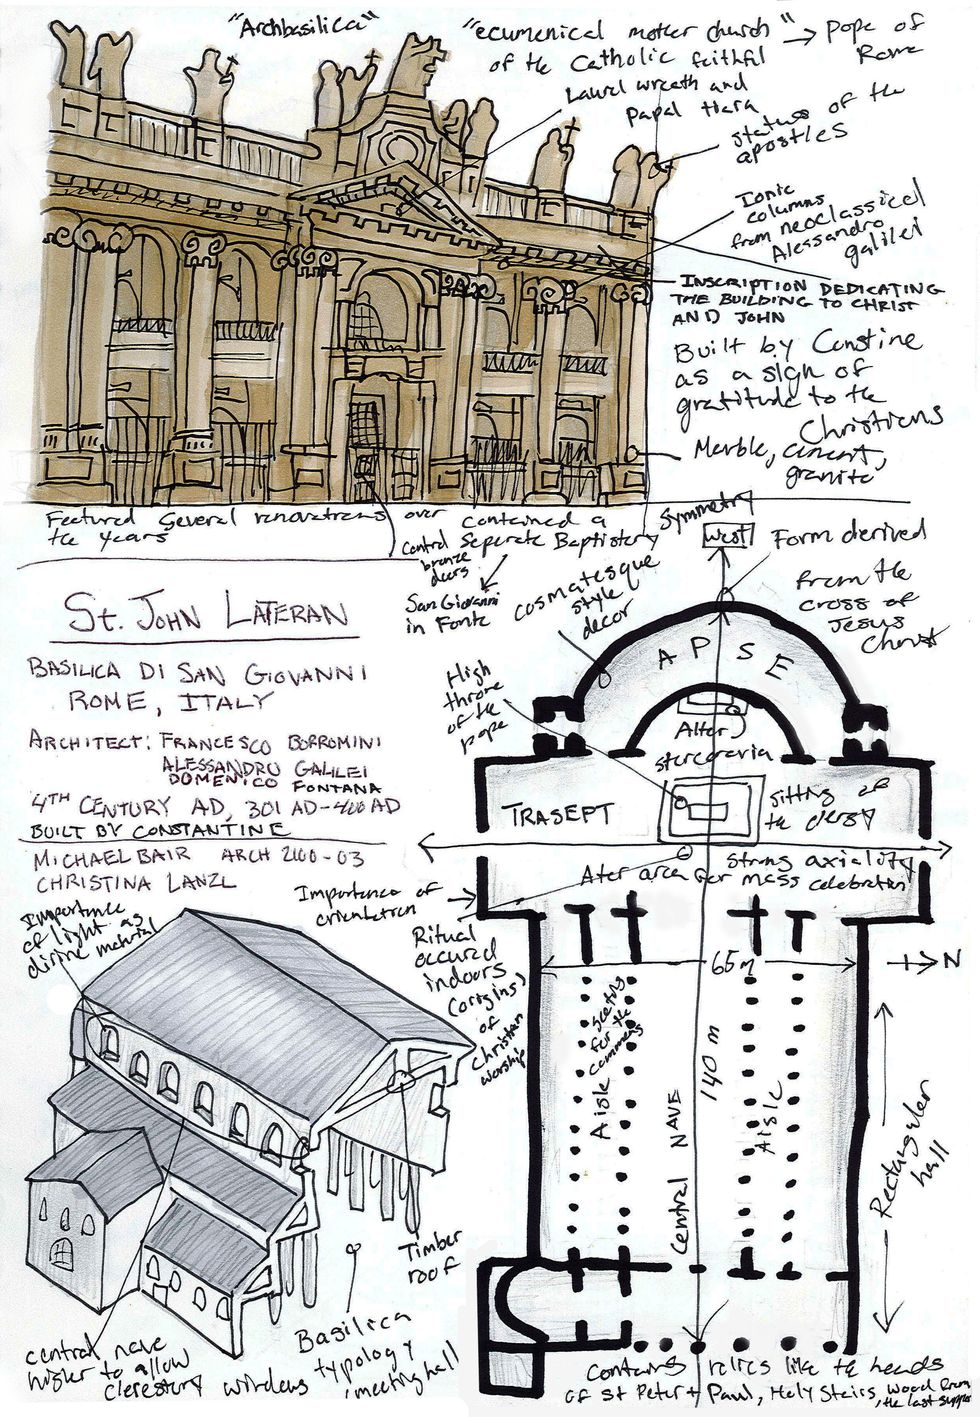 "Archbasilica"
"ecumenical mother church" → Pope of
of the Catholic faithful
Rome
Laurel wreath and
Papal tiara
statues of the
apostles
Ionic
columns
from neoclassical
Alessandro
galilei
INSCRIPTION DEDICATING
THE BUILDING TO CHRIST
AND JOHN
Built by Constine
as a sign of
gratitude to the
Christians
Marble, cement,
granite
Featured several renovations over
the years
Central
bronze
doors
contained a
Separate Baptistery
San Giovanni
in Fonte
Symmetry
West
Form derived
from the
cross of
Jesus
Christ
cosmatesque
style
decor
ST. JOHN LATERAN
BASILICA DI SAN GIOVANNI
ROME, ITALY
ARCHITECT: FRANCESCO BORROMINI
ALESSANDRO GALILEI
DOMENICO FONTANA
4TH CENTURY AD, 301 AD-400 AD
BUILT BY CONSTANTINE
MICHAEL BAIR ARCH 2100-03
CHRISTINA LANZL
High
throne
of the
pope
APSE
Alter
TRASEPT
sitting of
the clergy
Strong axiality
Ater area for mass celebration
Importance of
orientation
Importance
of light as
divine material
Ritual
occured
indoors
(origins)
of
Christian
worship
65 m
N
seating
for the
commens
Aisle
Central NAVE
140 m
Aisle
Rectangular
hall
Timber
roof
Basilica
typology
meeting hall
central nave
higher to allow
clerestory windows
Contains relics like the heads
of St Peter + Paul, Holy Stairs, Wood from
the last supper